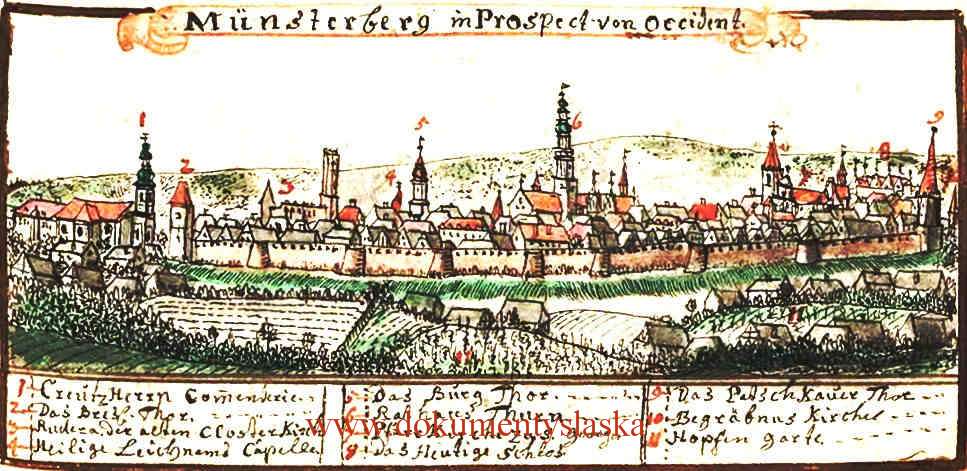 Münsterberg in Prospect von Occident.
1 2 3 4 5 6 8 9
11
1. Creütz Herrn Com̄enderie
2. Das Thor.
3. Rudera, der alten Closter Kirch
4. Heilige Leichnams Capelle
5. Das Burg Thor
6. Rathaus Thurn
8. Das Heütige Schlos
9. Das Patschkauer Thor
10. Begräbnus Kirchel
11. Hopfen garte
www.dokumentyslaska